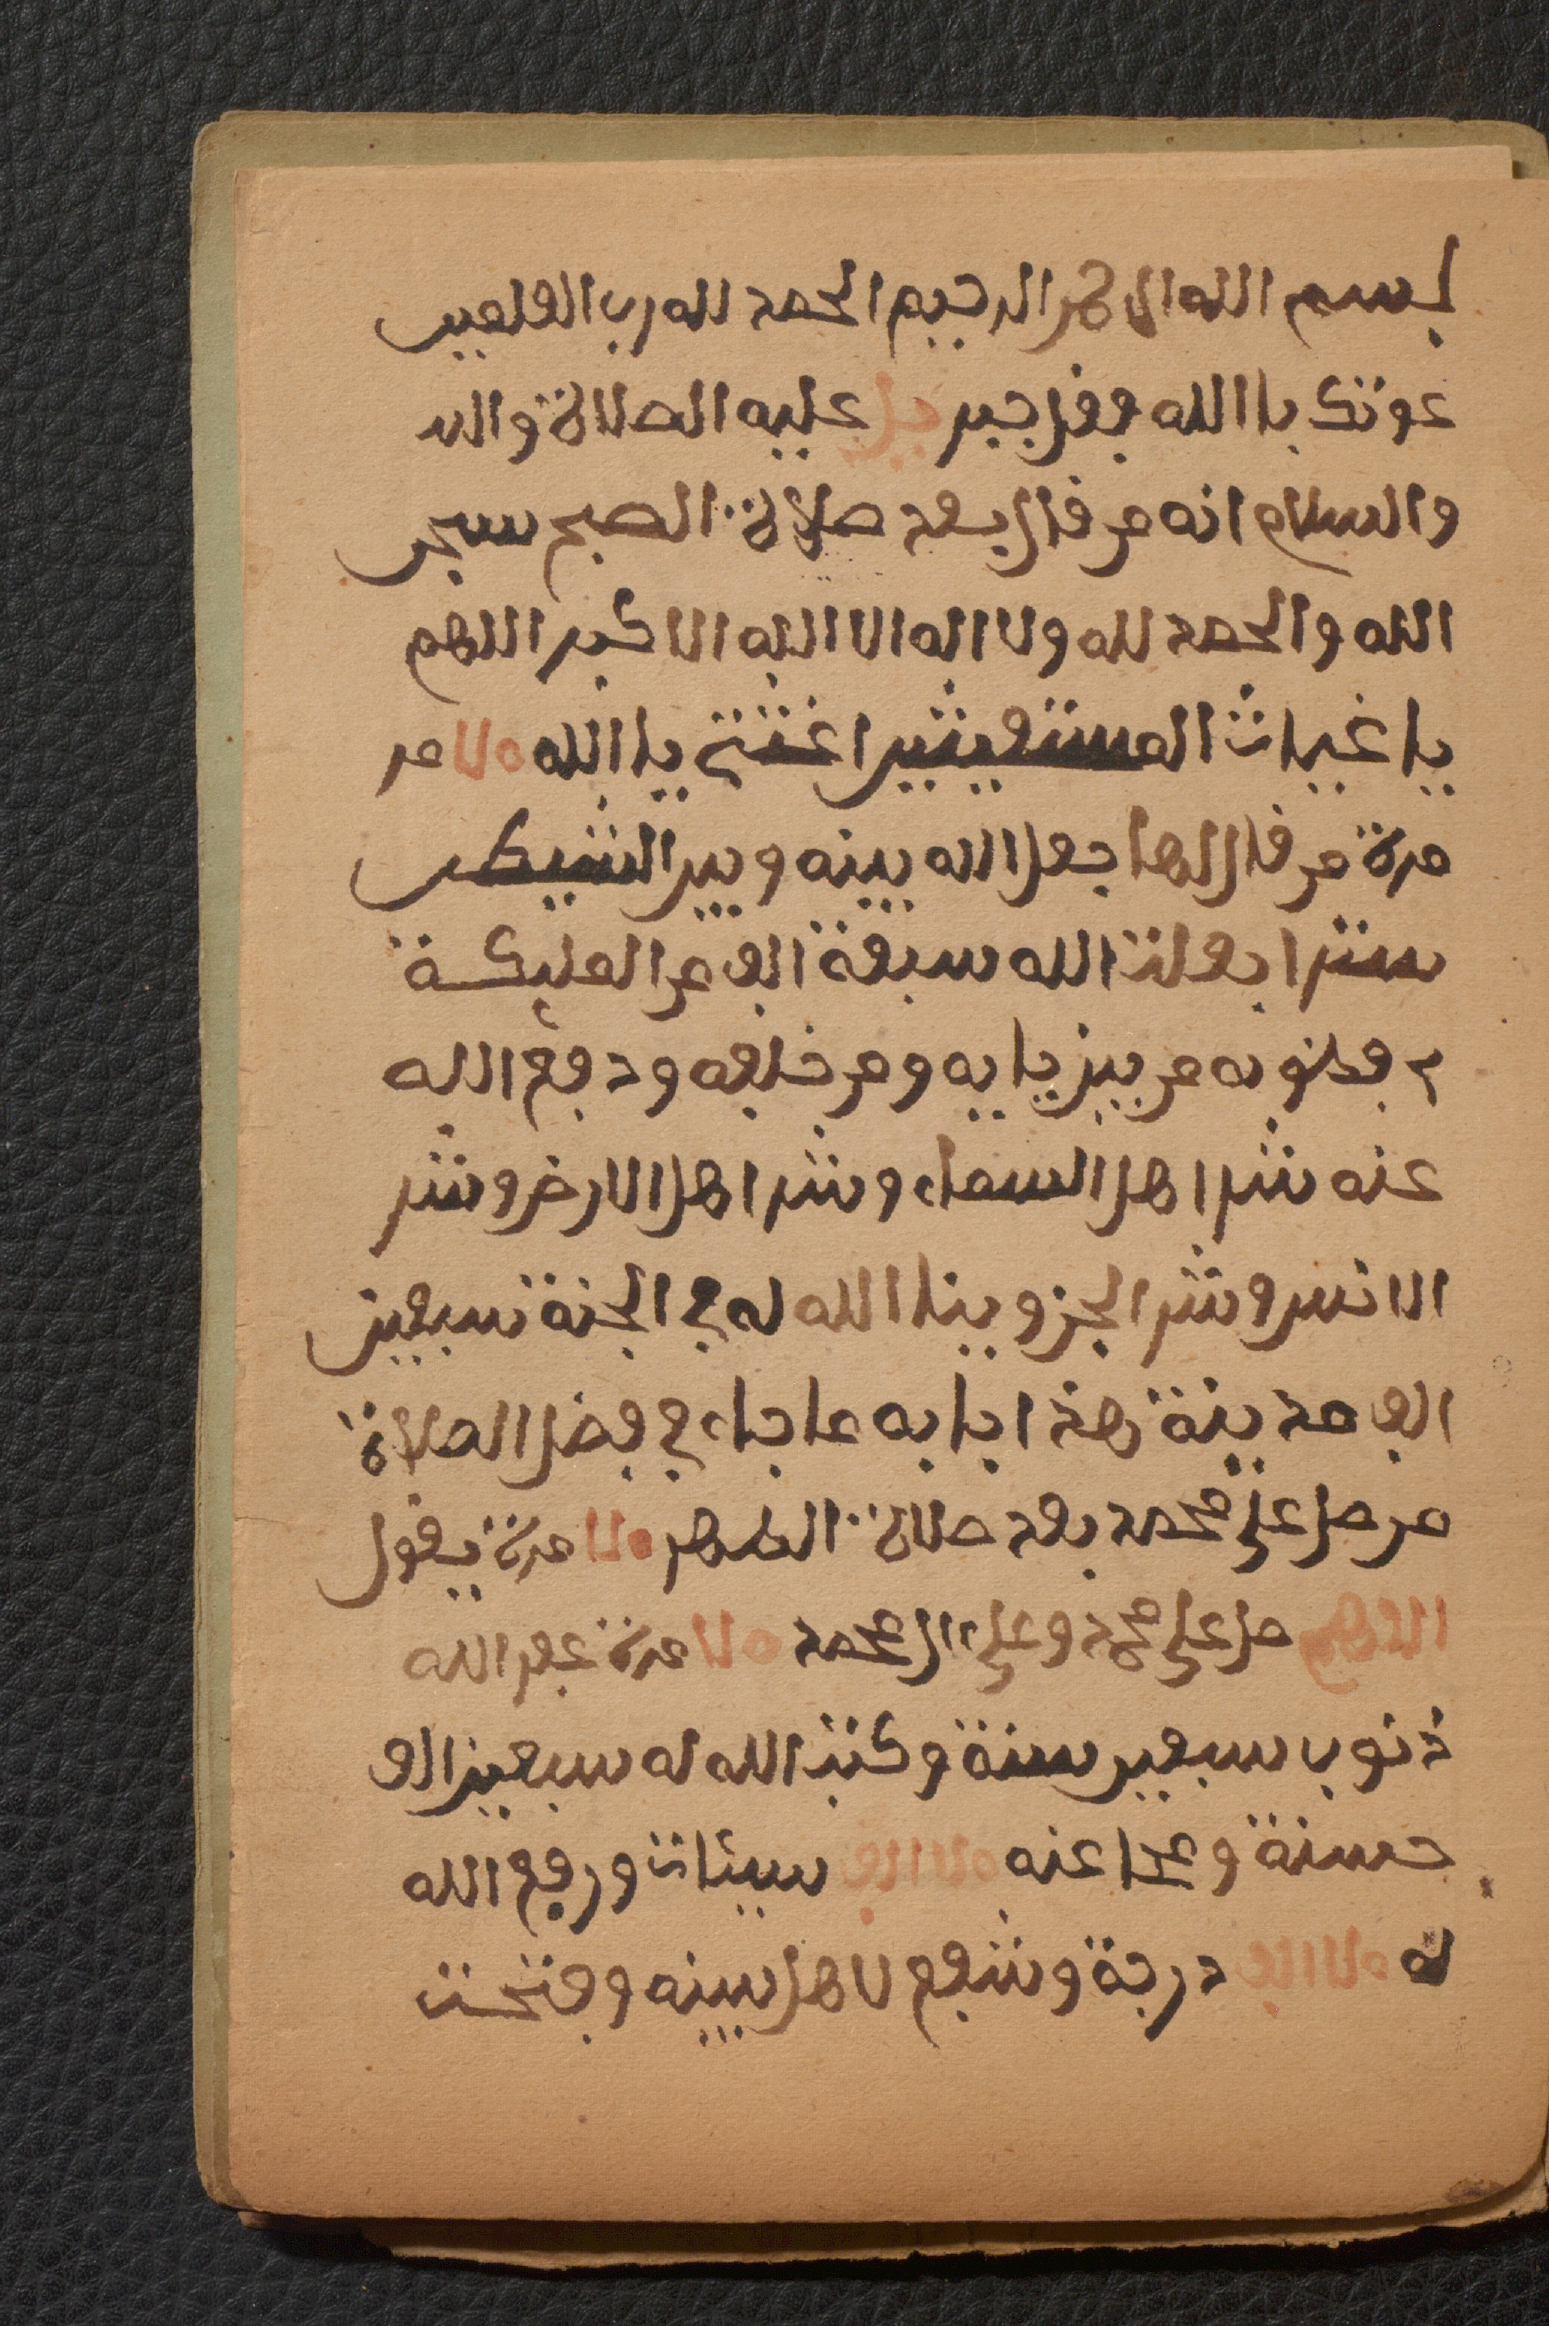 بسم الله الرحمن الرحيم الحمد لله رب العلمين
عونك يا الله وفل جبر يل عليه الصلاة والس
والسلام انه من قال بعد صلاة الصبح سبحن
الله والحمد لله ولا اله الا الله الا كبر اللهم
يا غياث المستغيثين اغثني يا الله من
مرة من قال لها جعل الله بينه وبين الشيطن
سترا بعث الله سبعة الف من المليكة
من بين يديه ومن خلفه ودفع الله
عنه شر اهل السماء وشر اهل الارض وشر
الانس وشر الجن وبنا الله له في الجنة سبعين
الف مدينة هذا بابه ما جاء في فضل الصلاة
من صل على محمد بعد صلاة الظهر مرة يقول
اللهم صل على محمد وعلى ال محمد مرة غفر الله
ذنوب سبعين سنة وكتب الله له سبعين الف
حسنة ومحا عنه الف سيئات ورفع الله
له الف درجة وشفع لاهل بيته وفتحت